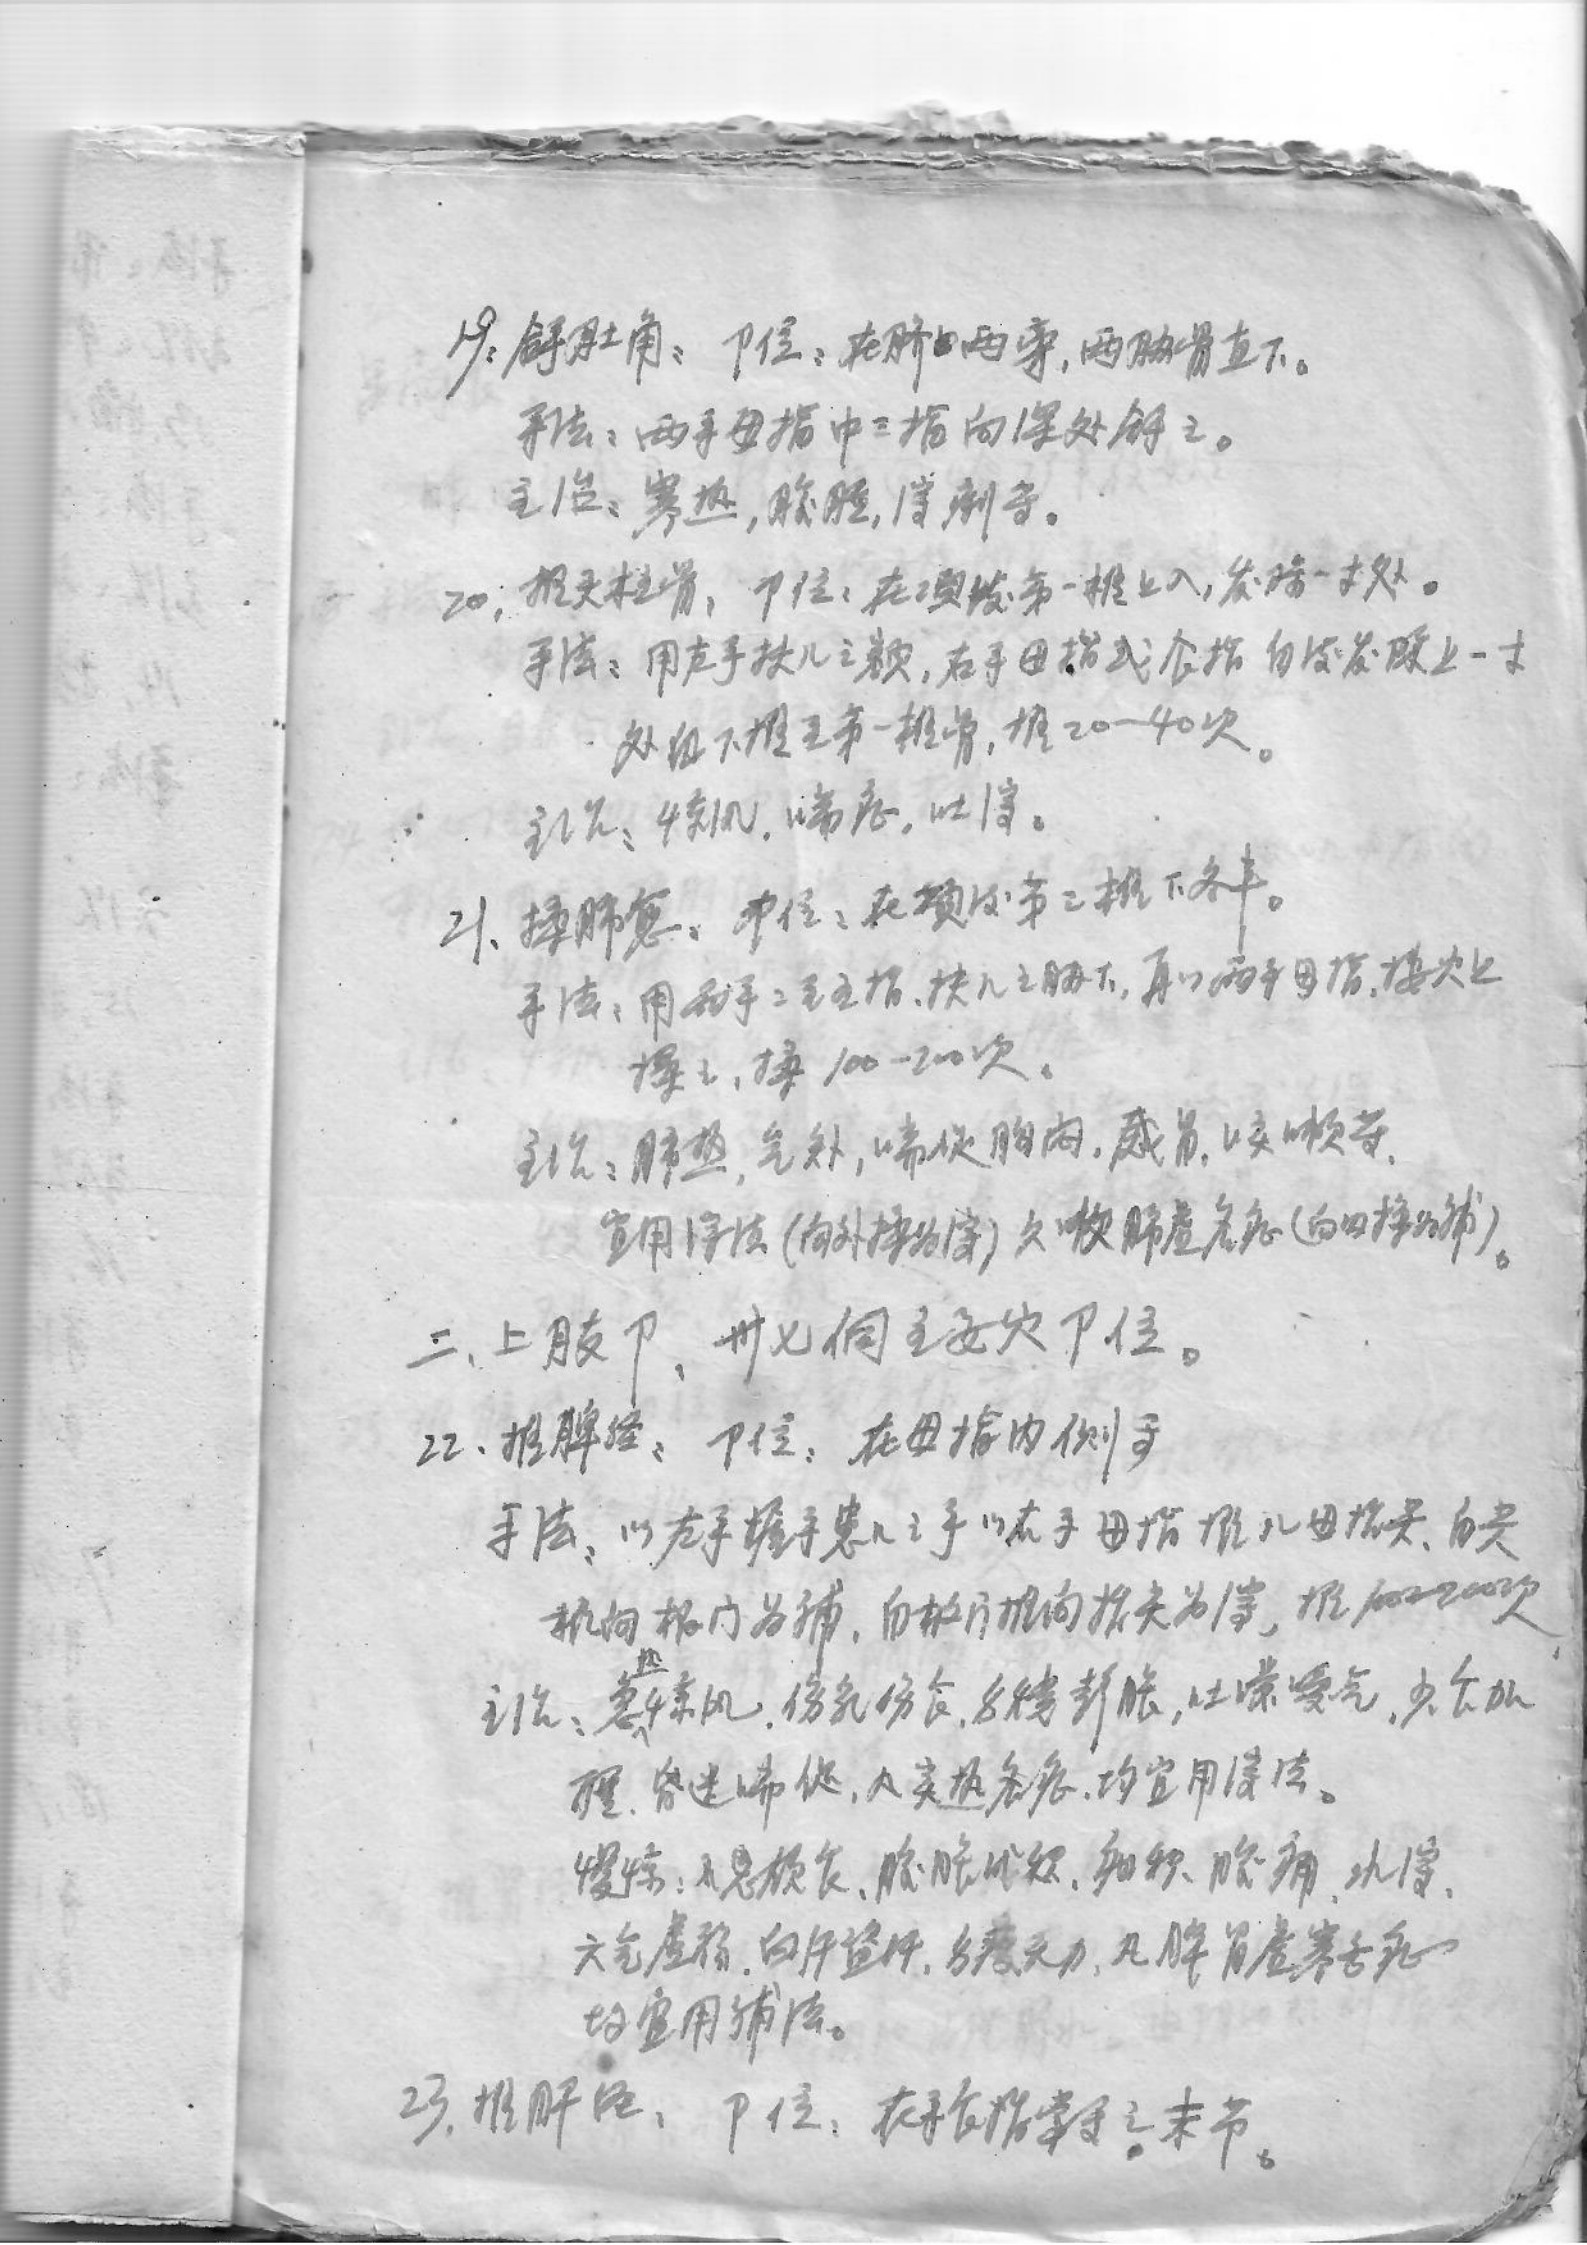 19：拿肚角：卩位：在脐口两旁，两胁骨直下。
手法：两手母指中三指向深处拿之。
主治：寒热，腹胀，泻痢等。
20，推天柱骨，卩位：在项后第一椎上入，发际一寸处。
手法：用左手扶儿之额，右手母指或食指自后发际上一寸
处但下推至第一椎骨，推20—40次。
主治：惊风．喘症．吐泻。
21、揉肺俞：卩位：在项后第三椎下各半。
手法：用两手二三五指．扶儿之胁下，再以两手母指．按穴上
揉之，揉100—200次。
主治：肺热，气短，喘促胸闷．感冒．咳嗽等．
宜用泻法（向外揉为泻）久咳肺虚各症（向内揉为补）。
二、上肢卩、卅七個主要穴卩位。
22、推脾经：卩位：在母指内侧
手法：以左手握手患儿之手以右手母指推儿母指尖．自尖
推向板门为补．自板门推向指尖为泻，推100—200次
主治：急热惊风．伤乳伤食．彭胀，吐嗳气．少食
昏迷喘促．凡实热各症．均宜用泻法。
慢惊：不思额食．腹胀．疳积．腹痛．水泻．
六气虚弱．自汗盗汗．无力．凡脾胃虚寒各症
均宜用補法。
23．推肝经、卩位：在手食指掌面之末节。